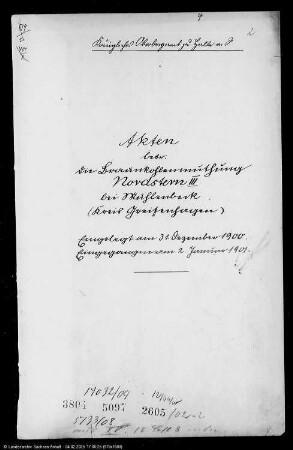 2
Königliches Oberbergamt zu Halle a. S.
Akten
betr.
die Braunkohlenmuthung
Nordstern III
bei Mühlenbeck
(Kreis Greifenhagen)
Eingelegt am 31 Dezember 1900.
Eingegangen am 2. Januar 1901.
17032/09
3804 5097 2605/02
5733/08
© Landesarchiv Sachsen-Anhalt